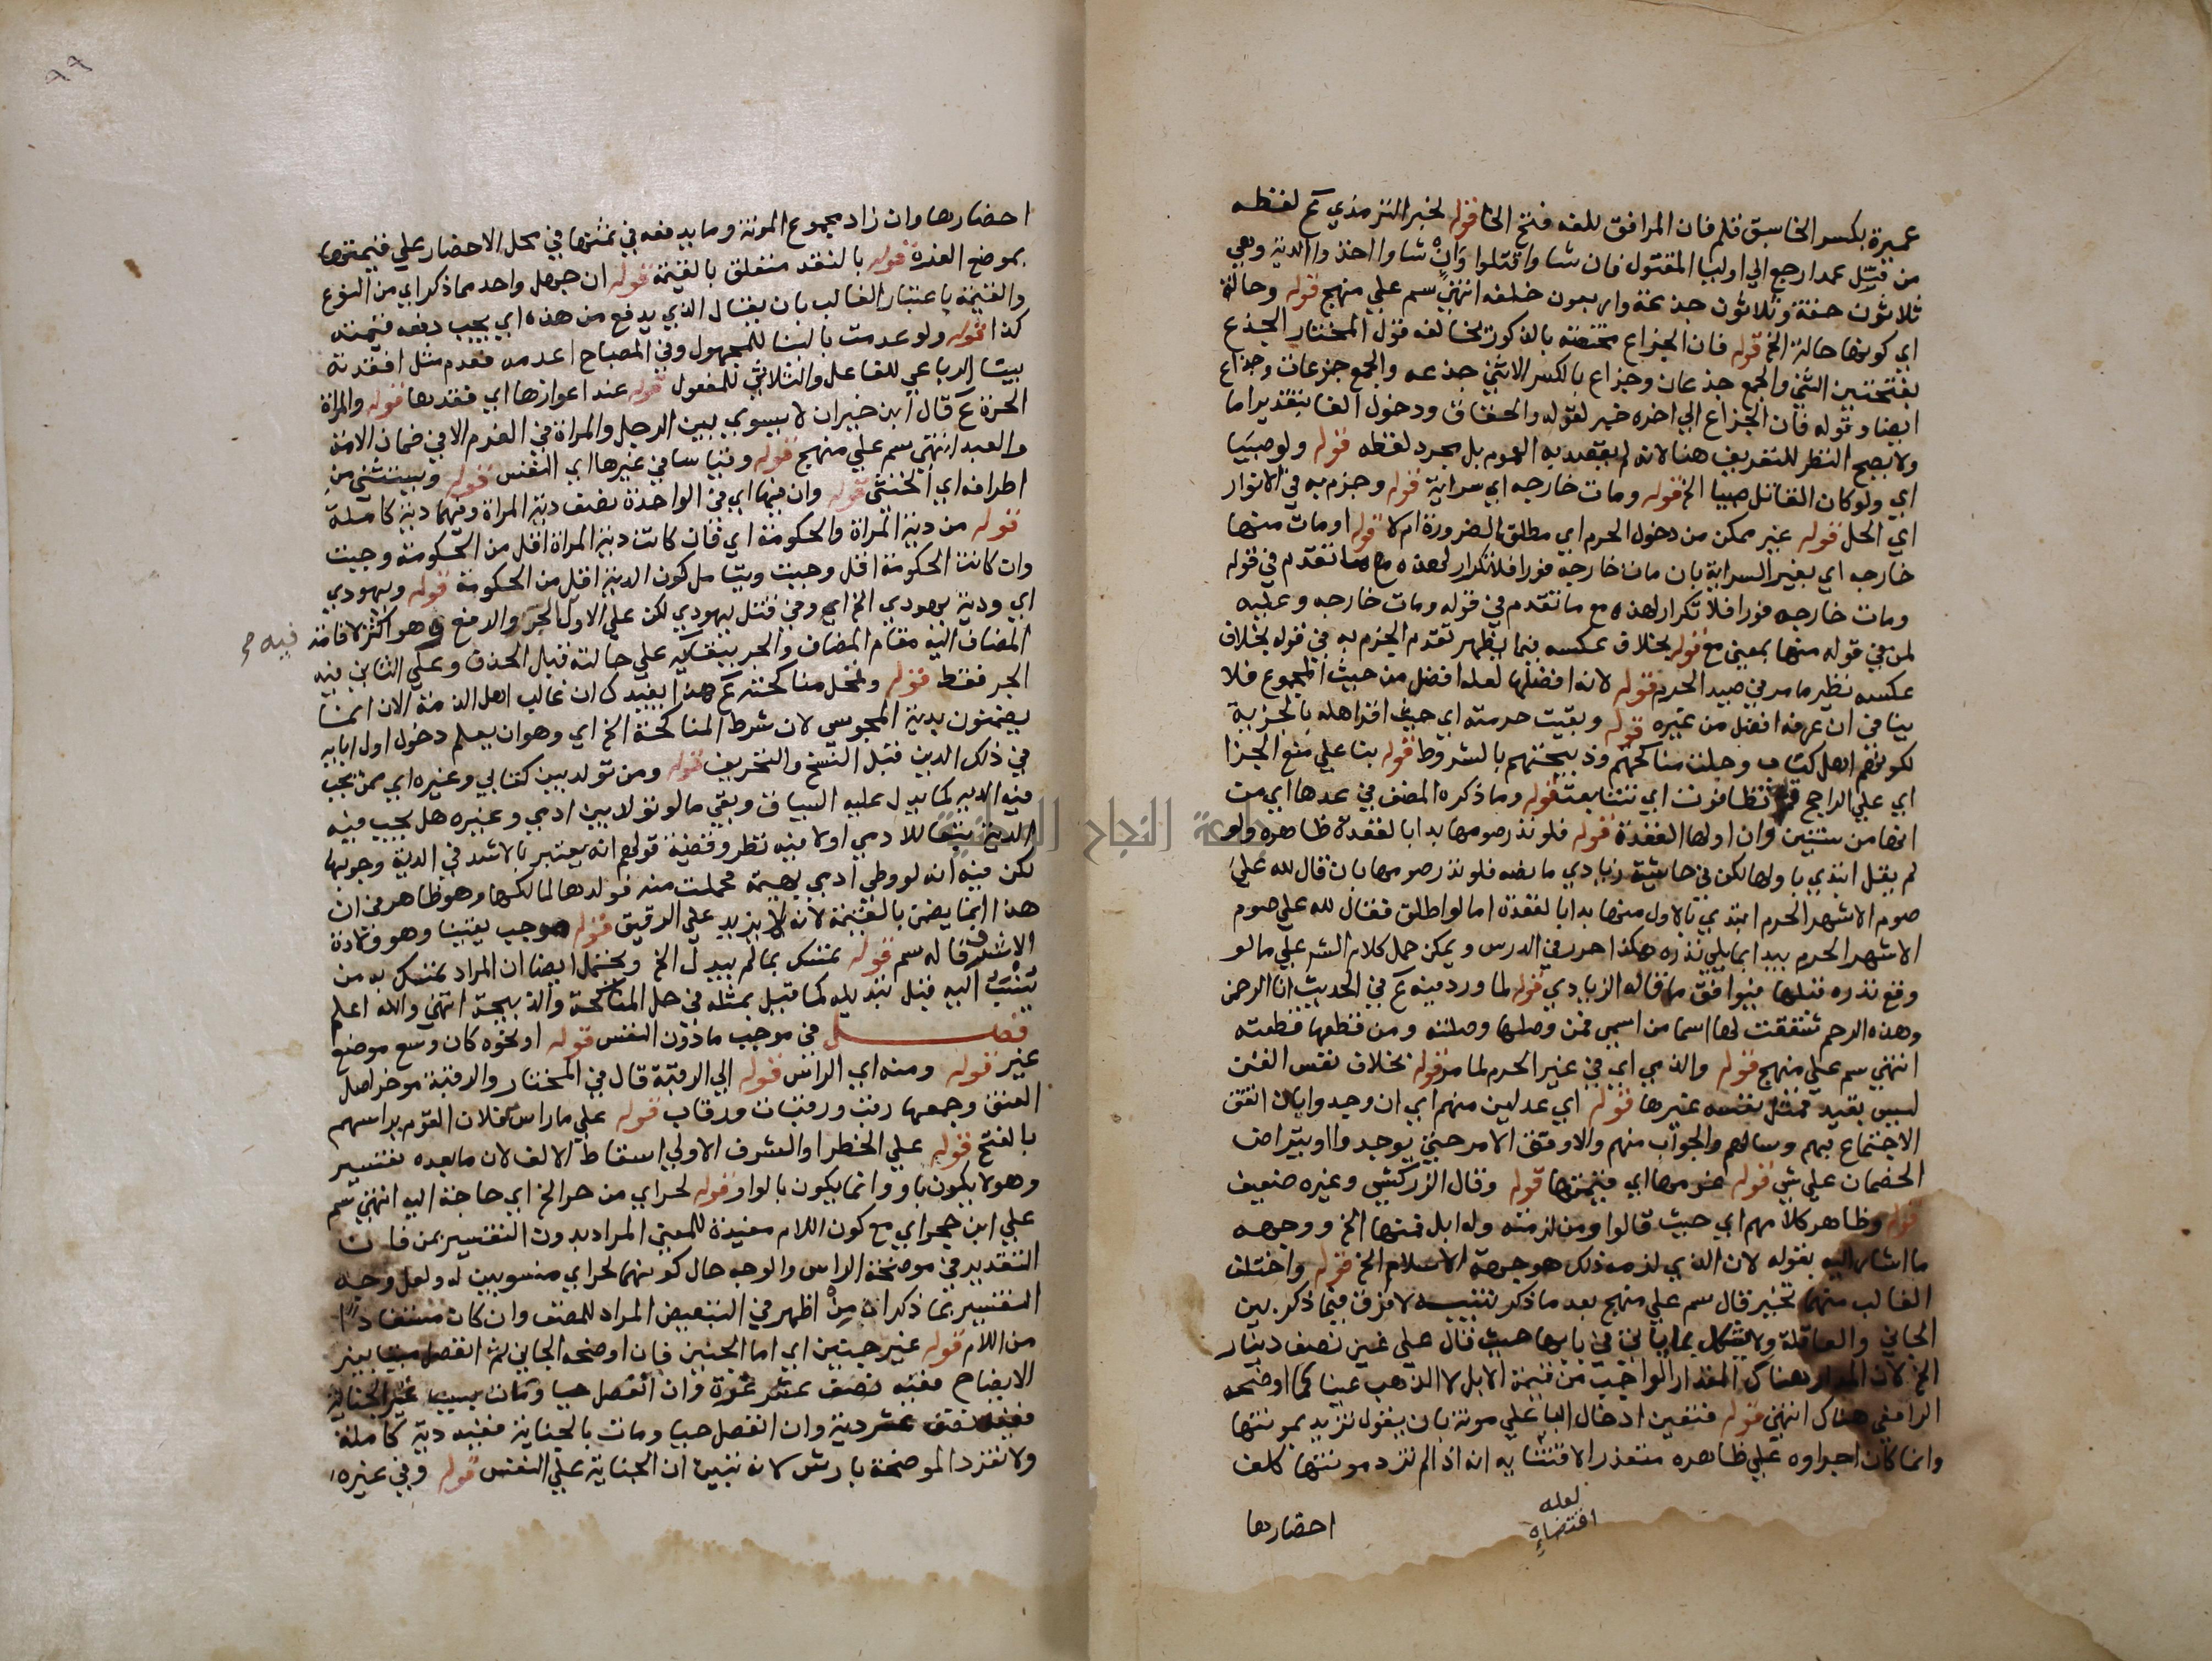 عميرة بكسر الخا سبق قلم فان المرافق للغه فتح الخا قوله لخبر الترمذي كم لفظه
من قتل عمدا رجع الي اوليا المقتول فان شاوا قتلوا وان شاوا اخذوا الدية وهي
ثلاثون حقة وثلاثون جذعة واربعون خلفه انتهي سم علي منهج قوله وحالة
اي كونها حالة الخ قوله فان الجزاع مختصة بالذكور تخالفه قول المختار الجذع
بفتحتين الثني والجمع جذعان وجذاع بالكسر الانثي جذعه والجمع جزعات وجذاع
ايضا وقوله فان الجزاع الي اخره خبر لقوله والحقاق ودخول الفا بتقدير اما
ولا يصح النظر للتعريف هنا لانه لم يقصد به العموم بل مجرد لفظه قوله ولو صبيا
اي ولو كان القاتل صبيا الخ قوله ومات خارجه اي سراية قوله وجزم به في الانوار
اي الحل قوله غير ممكن من دخول الحرم اي مطلق لضرورة ام لا قوله او مات منها
خارجه اي بغير السراية بان مات خارجه فورا فلا تكرار لهذه مع ما تقدم في قوله
ومات خارجه فورا فلا تكرار لهذه مع ما تقدم في قوله ومات خارجه وعليه
لمن في قوله منها بمعني مع قوله بخلاف عكسه فيما يظهر تقدم الجزم به في قوله بخلاف
عكسه نظير ما مر في صيد الحرم قوله لانه افضلها لعله افضل من حيث المجموع فلا
ينافي ان عرفه افضل من غيره قوله وبقيت حرمته اي حيث اقرا هله بالجزية
لكونهم اهل كتاب وحلت مناكحتهم وذبيحتهم بالشروط قوله بنا علي منع الجزا
اي علي الراجح قوله تظافرت اي تتابعت قوله وما ذكره المصنف في عدها اي من
انها من سنتين وان اولها القعدة قوله فلو نذر صومها بدا بالقعدة ظاهره ولو
لم يقل ابتدي باولها لكن في حاشية زيادي ما نصه فلو نذر صومها بان قال لله علي
صوم الاشهر الحرم ابتدي بالاول منها بدا بالقعدة اما لو اطلق فقال لله علي صوم
الاشهر الحرم يبدا بما يلي نذره هكذا احرر في الدرس ويمكن حمل كلام الشر علي ما لو
وقع نذره قبلها فيوافق ما قاله الزيادي قوله لما ورد فيه كم في الحديث انا الرحمن
وهذه الرحم شققت لها اسما من اسمي فمن وصلها وصلته ومن قطعها قطعته
انتهي سم علي منهج قوله والذمي اي في غير الحرم لما مر قوله بخلاف نفس القن
ليس بقيد فمثل نفسه غيرها قوله اي عدلين منهم اي ان وجد وايان اتفق
الاجتماع بهم وسالهم والجواب منهم والا وقف الامر حتي يوجد وا او يتراضا
الخصمان علي ش قوله عنومها اي قيمتها قوله وقال الزركشي وغيره ضعيف
قوله وظاهر كلامهم اي حيث قالوا ومن لزمته وله ابل فمنها الخ ووجهه
ما اشار اليه بقوله لان الذي لزمه ذلك هو جهة الاسلام الخ قوله واختلف
الغالب منها تخير قال سم علي منهج بعد ما ذكر تنبيه لا فرق فيما ذكر بين
الجاني والعاقلة ولا يشكل بما ياتي في بابها حيث قال علي غني نصف دينار
الخ لان المراد هناك المقدار الواجب من قيمة الابل لا الذهب عينا كما اوضحه
الرافعي هناك انتهي قوله فتعين ادخال البا علي مونة بان يقول تزيد بمونتها
وانما كان اجراوه علي ظاهره متعذر الاقتضايه انه اذا لم تزد مونتها كلف
لعله
اقتضاه
احضارها
٩٩
احضارها وان زاد مجموع المونة وما يدفعه في ثمنها في محل الاحضار علي قيمتها
بموضع العزة قوله بالنقد متعلق بالقيمة قوله ان جهل واحد مما ذكر اي من النوع
والقيمة باعتبار الغالب بان يقال الذي يدفع من هذه اي يجب دفعه قيمته
كذا قوله ولو عدمت بالبنا للمجهول وفي المصباح اعدمه فعدم مثل افقدته
ببنا الرباعي للفاعل والثلاثي للمفعول قوله عند اعوازها اي فقدها قوله والمراة
الحرة كم قال ابن خيران لا يسوي بين الرجل والمراة في الغرم الا في ضمان الامة
والعبد انتهي سم علي منهج قوله وقياسا في غيرها اي النفس قوله ويستثني من
اطرافه اي الخنثي قوله وان فيها اي في الواحدة نصف دية المراة وفيهما دية كاملة
قوله من دية المراة والحكومة اي فان كانت دية المراة اقل من الحكومة وجبت
وان كانت الحكومة اقل وجبت ويتامل كون الدية اقل من الحكومة قوله ويهودي
اي ودية يهودي الخ اي وفي قتل يهودي لكن علي الاول الجر والرفع وهو اكثر لاقامة فيه م
المضاف اليه مقام المضاف والجر ببقايه علي حالته قبل الحذف وعلي الثاني فيه
الجر فقط قوله وتحل مناكحته كم هذا يفيد كان غالب اهل الذمة الان انما
يضمنون بدية المجوسي لان شرط المناكحة الخ اي وهو ان يعلم دخول اول ابايه
في ذلك الدين قبل النسخ والتحريف قوله ومن تولد بين كتابي وغيره اي ممن تجب
فيه الدية كما يدل عليه السياق وبقي ما لو تولد بين ادمي وغيره هل يجب فيه
الدية للادمي او لا فيه نظر وقضية قولهم انه يعتبر بالاشد في الدية وجوبها
لكن فيه انه لو وطي ادمي بهيمة فحملت منه فولدها لمالكها وهو ظاهر في ان
هذا انما يضمن بالقيمة لانه لا يزيد علي الرقيق قوله موجب يقينا وهو ولادة
الاشرف قاله سم قوله تمسك بما لم يبدل الخ ويحتمل ايضا ان المراد تمسك به من
تنسب اليه قبل تبديله كما قيل بمثله في حل المناكحة والذبيحة انتهي والله اعلم
فصل في موجب ما دون النفس قوله او نحوه كان وسع موضع
غير قوله ومنه اي الراس قوله الي الرقبة قال في المختار والرقبة موخر اصل
العنق وجمعها رقب ورقبات ورقاب قوله علي ما راس فلان القوم يراسهم
بالفتح قوله علي الخطر او الشرف الاولي اسقاط الالف لان ما بعده تفسير
وهو لا يكون باو وانما يكون بالواو قوله لحر اي من حر الخ اي حاجة اليه انتهي سم
علي ابن حجر اي مع كون اللام مفيدة للمعني المراد بدون التفسير بمن فان
التقدير في موضحة الراس والوجه حال كونهما لحر اي منسوبين له ولعل وجه
التفسير بما ذكر ان من اظهر في التبعيض المراد للمصنف وان كان مستفادا
من اللام قوله غير جنين اي اما الجنين فان اوضحه الجاني ثم انفصل ميتا بغير
الايضاح ففيه نصف عشر غرة وان انفصل حيا ومات بسبب غير الجناية
ففيه نصف عشر دية وان انفصل حيا ومات بالجناية ففيه دية كاملة
ولا تفرد الموضحة بارش لانه تبين ان الجناية علي النفس قوله وفي غيره